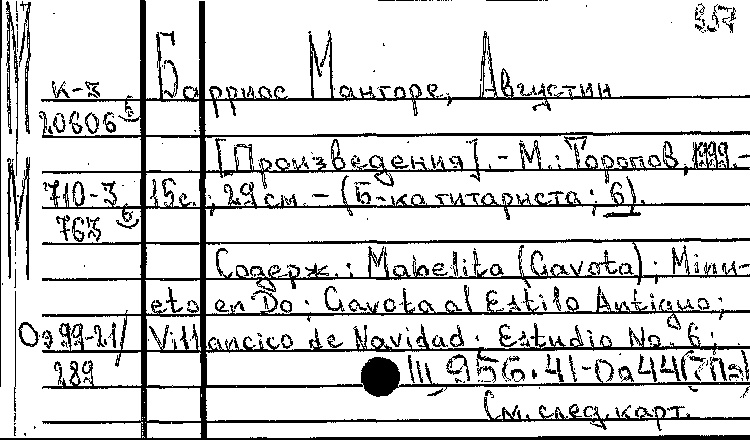 357
М Барриос Мангоре, Августин
К-3
20606
[Произведения]. - М.: Торопов, 1999.-
М 710-3 15с.; 29 см. - (Б-ка гитариста; 6).
763
Содерж.: Mabelita (Gavota); Minu-
eto en Do; Gavota al Estilo Antiguo;
Оэ 99-21/ Villancico de Navidad; Estudio No. 6;
289
III 956.41-0а44(7Па)
См. след. карт.